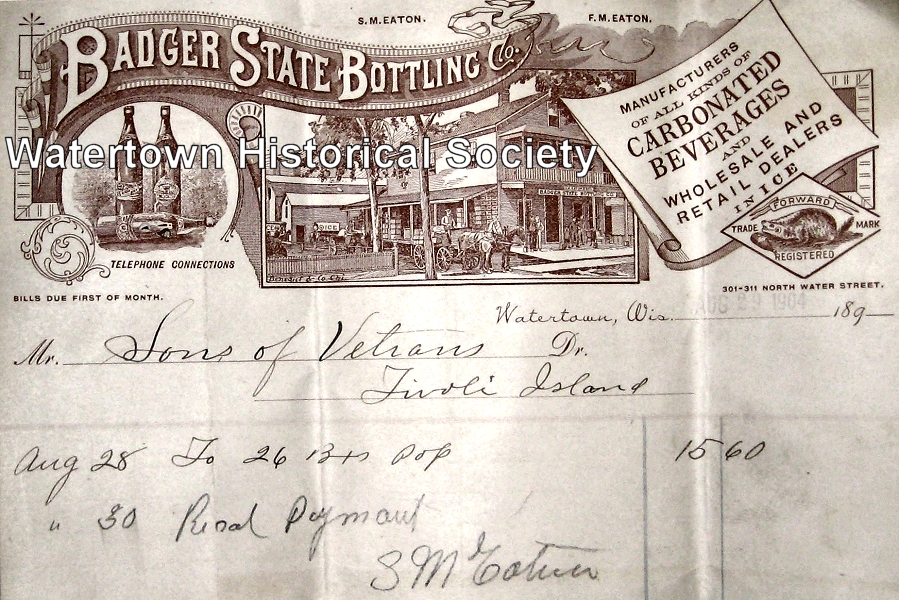 S.M.EATON. F.M.EATON.
BADGER STATE BOTTLING Co.
MANUFACTURERS
OF ALL KINDS OF
CARBONATED
BEVERAGES
AND
WHOLESALE AND
RETAIL DEALERS
IN ICE
Watertown Historical Society
BADGER STATE BOTTLING CO.
ICE
FORWARD
TRADE MARK
REGISTERED
TELEPHONE CONNECTIONS
BILLS DUE FIRST OF MONTH.
301-311 NORTH WATER STREET.
Watertown, Wis. AUG 29 1904 189
Mr. Sons of Vetrans Dr.
Tivoli Island
Aug 28 To 26 Bxs Pop 15 60
" 30 Recd Paymant
S M Eaton